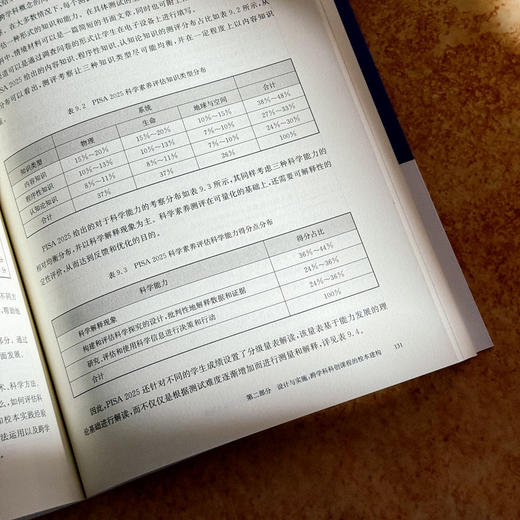 在大多数情况下,每个测
一种形式的知识和能力。在具体测试的
情境材料可以是一篇简短的书面文章,同时也可附上
可以是通过调查问卷的形式让学生在电子设备上进行填写。
PISA 2025 给出的内容知识、程序性知识、认知论知识的测评分布占比如表 9.2 所示,从
分布可以看出,测评考察让三种知识类型尽可能均衡,并在一定程度上以内容知识
表 9.2 PISA 2025 科学素养评估知识类型分布
知识类型 系统 合计
物理 生命 地球与空间
内容知识 15%~20% 15%~20% 10%~15% 38%~48%
程序性知识 10%~13% 10%~13% 7%~10% 27%~33%
认知论知识 8%~11% 8%~11% 7%~10% 24%~30%
合计 37% 37% 26% 100%
PISA 2025 给出的对于科学能力的考察分布如表 9.3 所示,其同样考虑三种科学能力的
相对均衡分布,并以科学解释现象为主。科学素养测评在可量化的基础上,还需要可解释性的
定性评价,从而达到反馈和优化的目的。
表 9.3 PISA 2025 科学素养评估科学能力得分点分布
科学能力 得分占比
科学解释现象 36%~44%
构建和评估科学探究的设计,批判性地解释数据和证据 24%~36%
研究、评估和使用科学信息进行决策和行动 24%~36%
合计 100%
因此,PISA 2025 还针对不同的学生成绩设置了分级量表解读,该量表基于能力发展的理
论基础进行解读,而不仅仅是根据测试难度逐渐增加而进行测量和解释,详见表 9.4。
第二部分 设计与实施:跨学科科创课程的校本建构 131
不同方
帮助他
部分。通过
面发展。
术、科学方法、
,如何评估科
和校本实践经验
法运用以及跨学